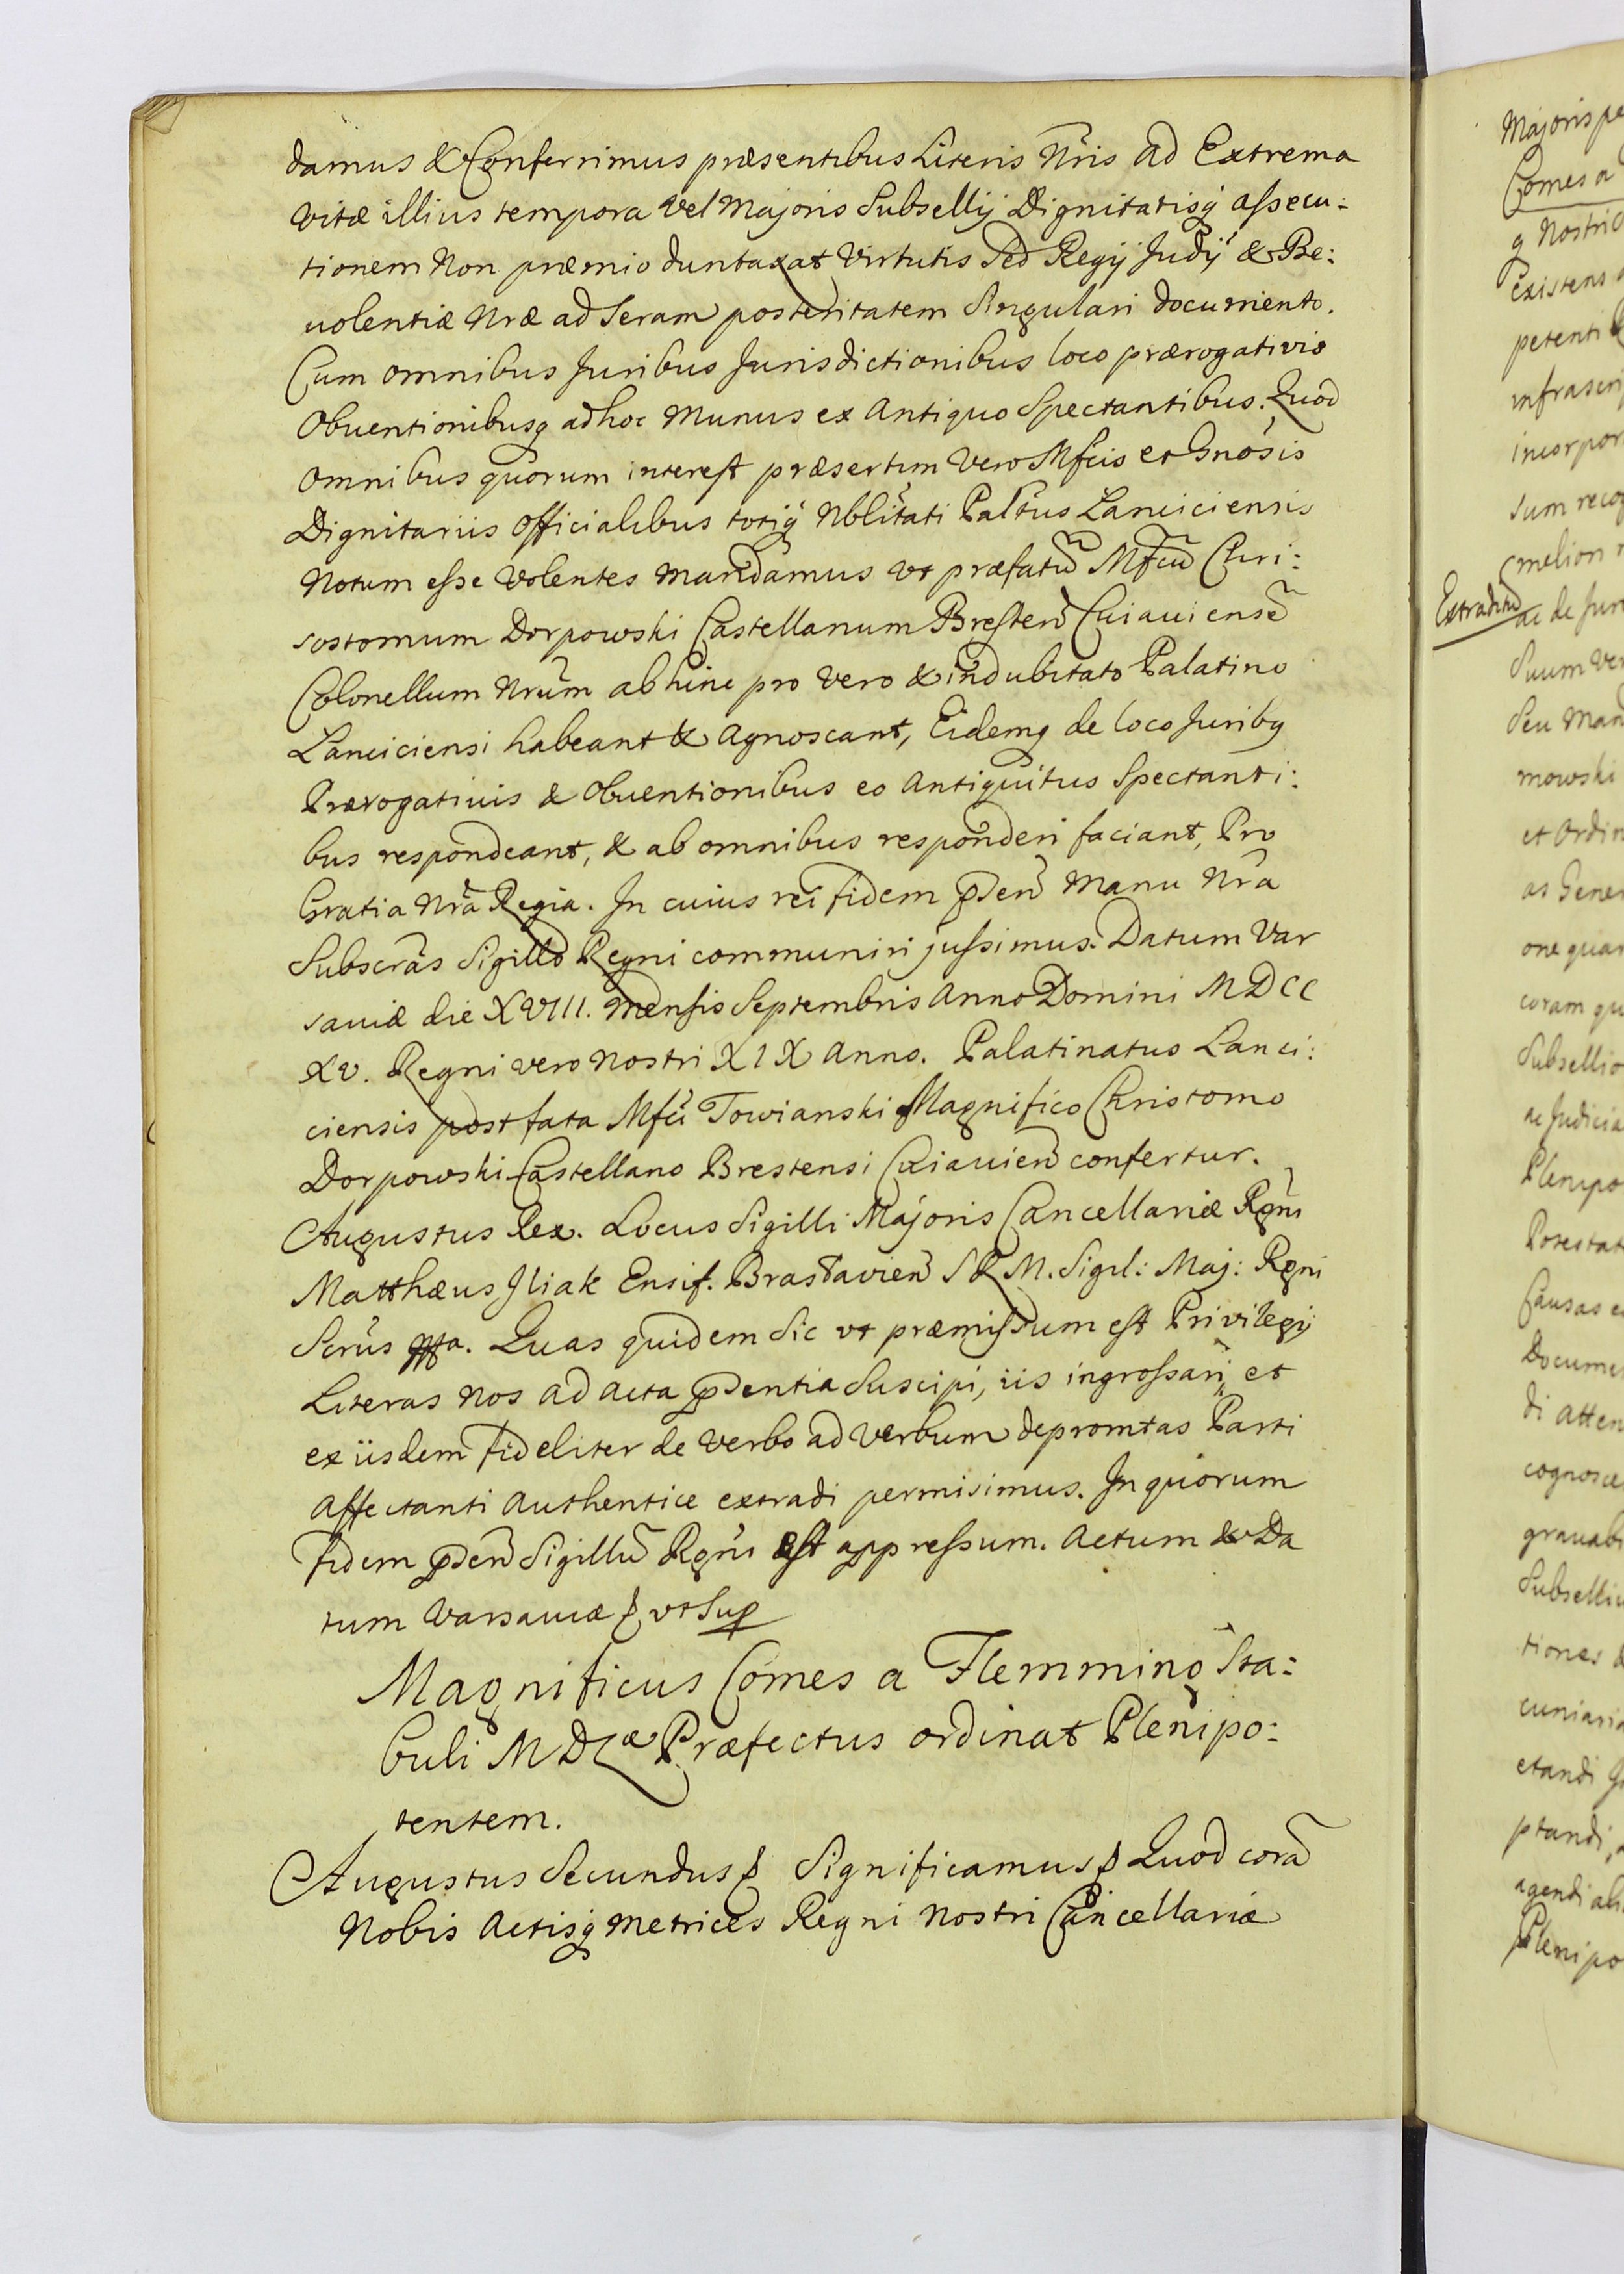 damus & Conferrimus præsentibus Literis Nris ad Extrema
vitæ illius tempora vel Majoris Subsellij Dignitatisq assecu:
tionem Non præmio duntaxat Virtutis Sed Regij Judij & Be:
uolentiæ Nræ ad Seram posteritatem Singulari documento.
Cum omnibus Juribus Jurisdictionibus loco prærogativis
Obuentionibusq ad hoc Munus ex Antiquo Spectantibus. Quod
omnibus quorum interest præsertim Vero Mfcis et Gnosis
Dignitariis Officialibus totiq Nblitati Paltus Lanciciensis
Notum esse Volentes mandamus vt præfatu Mfcu Chri:
sostomum Dorpowski Castellanum Bresten Cuiauiense
Colonellum Nrum abhinc pro Vero & indubitato Palatino
Lanciciensi habeant & Agnoscant, Eidemq de loco Juribq
Prærogatiuis & Obuentionibus eo Antiquitus Spectanti:
bus respondeant, & ab omnibus responderi faciant, Pro
Gratia Nra Regia. In cuius rei fidem pden Manu Nra
Subscras Sigillo Regni communiri jussimus. Datum Var
sauiæ die XVIII. Mensis Septembris Anno Domini MDCC
XV. Regni vero Nostri XIX Anno. Palatinatus Lanci:
ciensis post fata Mfci Towianski Magnifico Christomo
Dorpowski Castellano Brestensi Cuiauien confertur.
Augustus Rex. Locus Sigilli Majoris Cancellariæ Rgni
Matthæus Iliak Ensif. Braslavien S R M. Sigil: Maj: Rgni
Scrius mpa. Quas quidem Sic vt præmissum est Privilegij
Literas Nos ad acta pdentia Suscipi, iis ingrossari, et
ex iisdem fideliter de Verbo ad Verbum depromtas Parti
Affectanti Authentice extradi permisimus. In quorum
fidem pden Sigillu Rgni est appressum. Actum & Da
tum Varsauiæ & vt Sup
Magnificus Comes a Flemming Sta:
buli MDLæ Præfectus ordinat Plenipo:
tentem.
Augustus Secundus & Significamus & Quod cora
Nobis Actisq Metrices Regni Nostri Cancellariæ
Majoris
Comes a
q Nostri
existens
petenti
infrascri
incorpor
sum recog
melion
Extraditu
ac de Jur
Suum ver
Seu Man
mowski
et Ordin
as Gener
one quar
coram qu
Subsellio
ac Judicia
Plenipo
Potestat
Causas
Docume
di atten
cognosce
grauab
Subselliu
tiones
cuniaria
ctandi
ptandi,
agendi ali
Plenipo